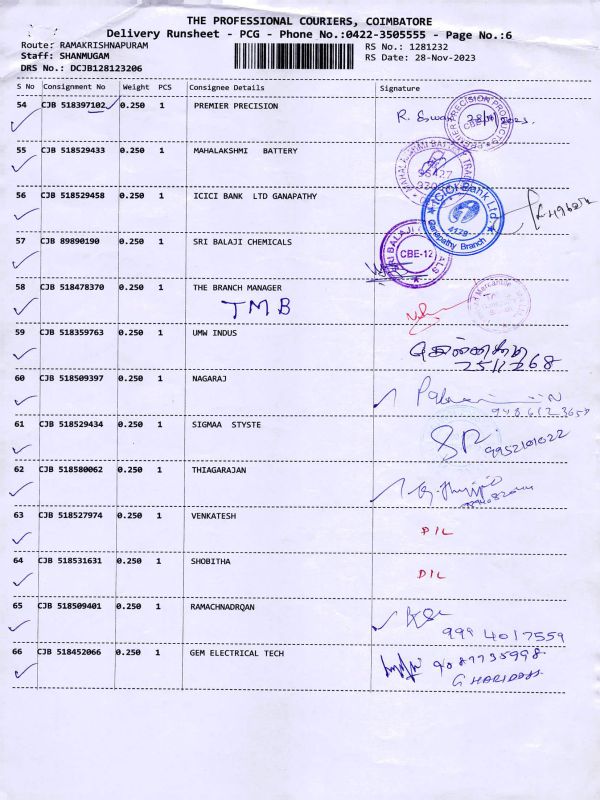 THE PROFESSIONAL COURIERS, COIMBATORE
Delivery Runsheet - PCG - Phone No.:0422-3505555 - Page No.:6
Route: RAMAKRISHNAPURAM RS No.: 1281232
Staff: SHANMUGAM RS Date: 28-Nov-2023
DRS No.: DCJB128123206
S No Consignment No Weight PCS Consignee Details Signature
54 CJB 518397102 0.250 1 PREMIER PRECISION
55 CJB 518529433 0.250 1 MAHALAKSHMI BATTERY
56 CJB 518529458 0.250 1 ICICI BANK LTD GANAPATHY ICICI Bank Ltd 4129 Ganapathy Branch
57 CJB 89890190 0.250 1 SRI BALAJI CHEMICALS CBE-12
58 CJB 518478370 0.250 1 THE BRANCH MANAGER
TMB
59 CJB 518359763 0.250 1 UMW INDUS
60 CJB 518509397 0.250 1 NAGARAJ
61 CJB 518529434 0.250 1 SIGMAA STYSTE 9952101022
62 CJB 518580062 0.250 1 THIAGARAJAN
63 CJB 518527974 0.250 1 VENKATESH D/L
64 CJB 518531631 0.250 1 SHOBITHA D/L
65 CJB 518509401 0.250 1 RAMACHNADRQAN
9994017559
66 CJB 518452066 0.250 1 GEM ELECTRICAL TECH 9087735998
G HARIDOSS